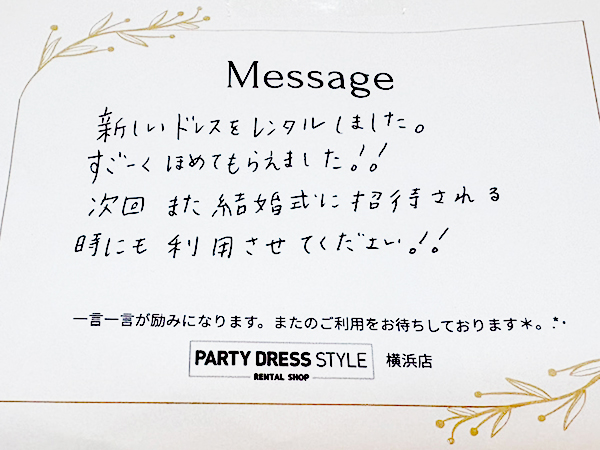 Message
新しいドレスをレンタルしました。
すごーくほめてもらえました!!
次回 また 結婚式に招待される
時にも 利用させてください!!
一言一言が励みになります。またのご利用をお待ちしております*。.*・
PARTY DRESS STYLE 横浜店
RENTAL SHOP